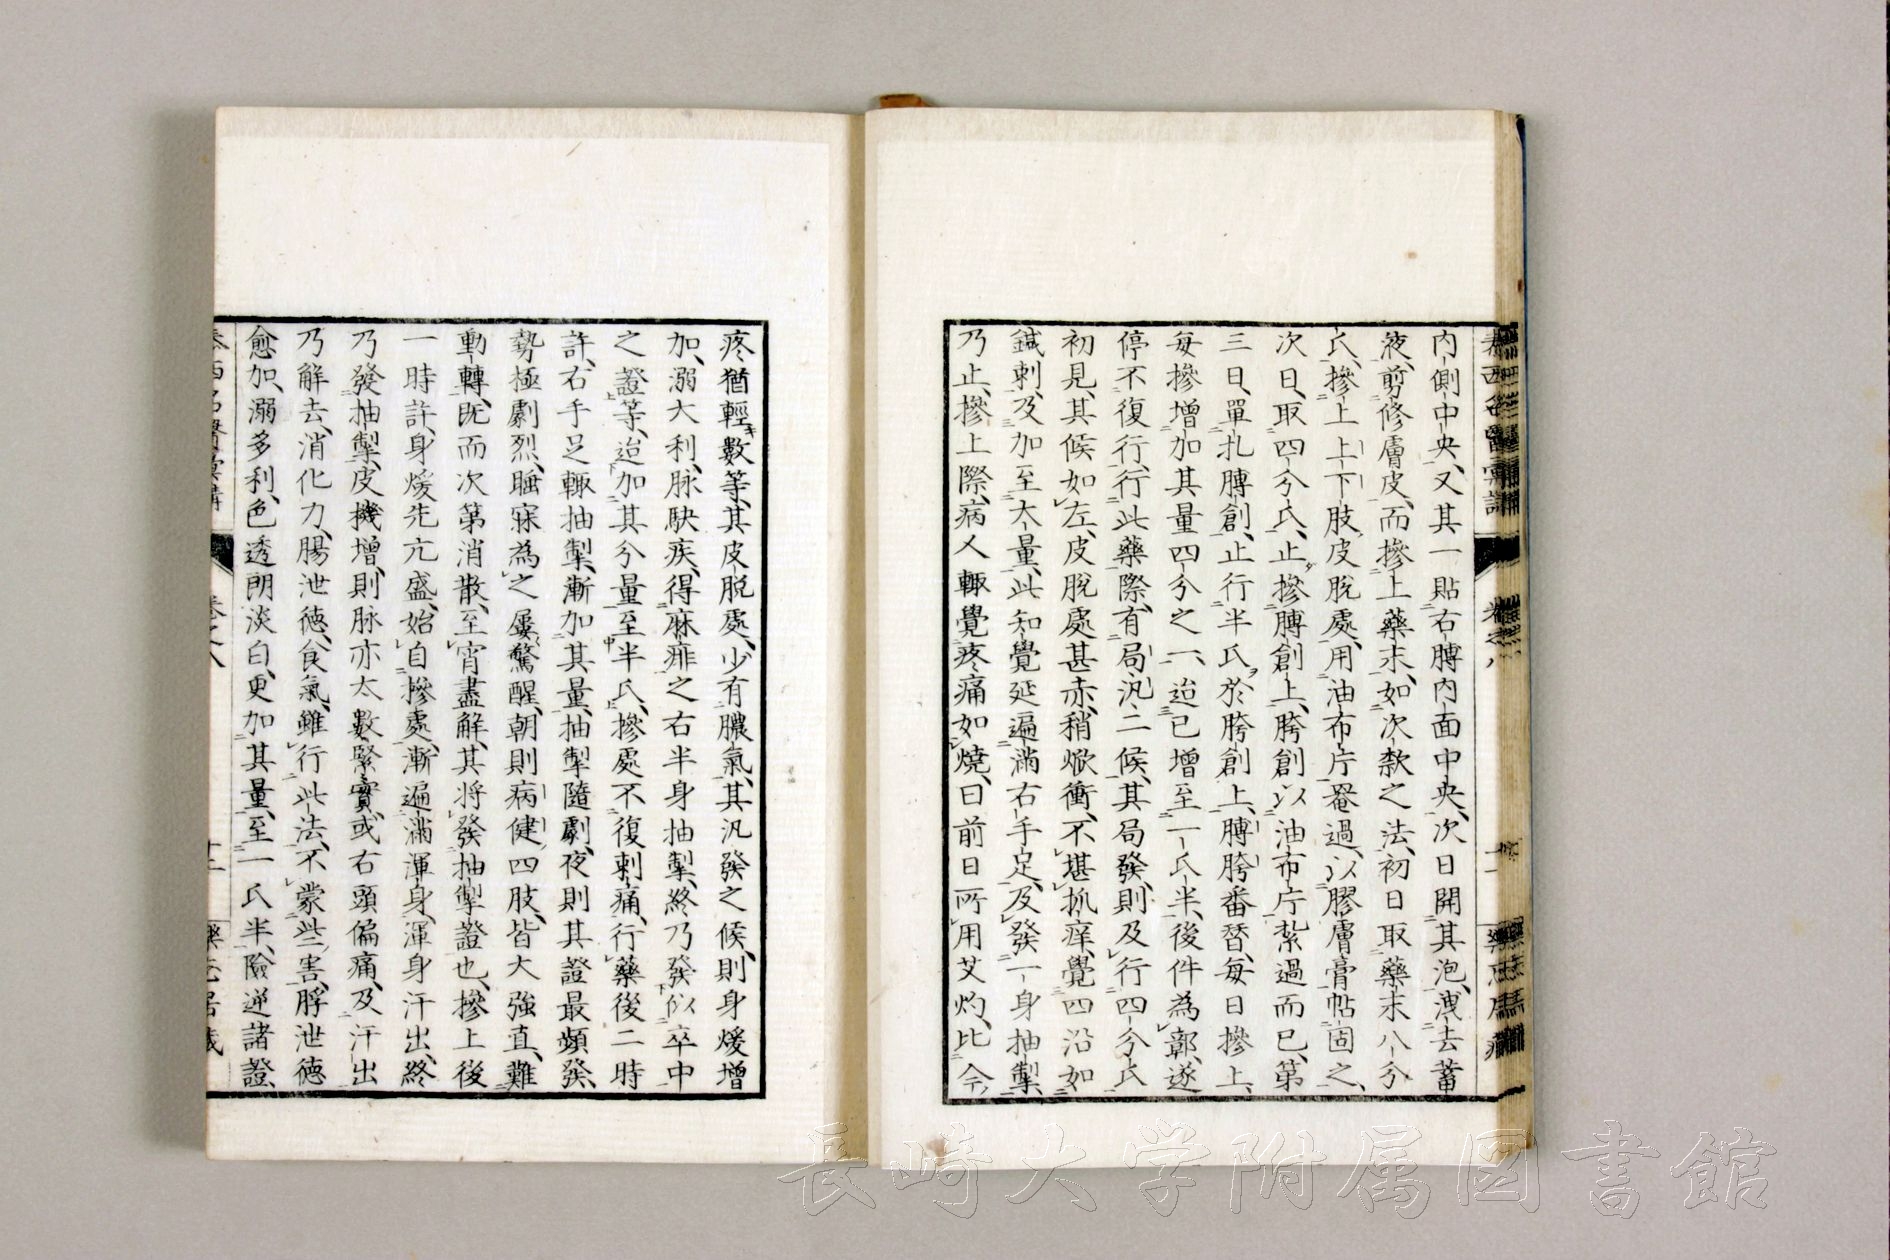 内側中央、又其一貼右膊内面中央、次日開其泡、洩去蓄
液、剪修膚皮、而摻上藥末、如次欵之法、初日取藥末八分
氏、摻上上下肢皮脫處、用油布片罨過、以膠膚膏帖固之、
次日、取四分氏、止摻膊創上、胯創以油布片紮過而已、第
三日、單扎膊創、止行半氏於胯創上、膊胯番替、每日摻上、
每摻增加其量四分之一、迨已增至一氏半、後件為彰、遂
停不復行、行此藥際、有局汎二候、其局發、則及行四分氏
初見、其候如左、皮脫處甚赤、稍焮衝、不堪抓痒、覺四沿如
鍼刺、及加至大量、此知覺延遍滿右手足、及發一身抽掣、
乃止、摻上際、病人輙覺疼痛如燒、曰前日所用艾灼、比今
疼猶輕數等、其皮脫處、少有膿氣、其汎發之候、則身煖增
加、溺大利、脉駃疾、得麻痱之右半身抽掣、終乃發似卒中
之證等、迨加其分量至半氏、摻處不復刺痛、行藥後二時
許、右手足輙抽掣、漸加其量、抽掣隨劇、夜則其證最頻發、
勢極劇烈、睡寐為之屢驚醒、朝則病健四肢、皆大強直、難
動轉、既而次第消散、至宵盡解、其將發抽掣證也、摻上後
一時許、身煖先亢盛、始自摻處、漸遍滿渾身、渾身汗出、終
乃發抽掣、皮機增、則脉亦太數緊實、或右頭偏痛、及汗出
乃解去、消化力、腸泄德、食氣、雖行此法、不蒙些害、脬泄德
愈加、溺多利、色透朗淡白、更加其量、至一氏半、險逆諸證
泰西名醫彙講 卷之八 十二
長崎大学附属図書館